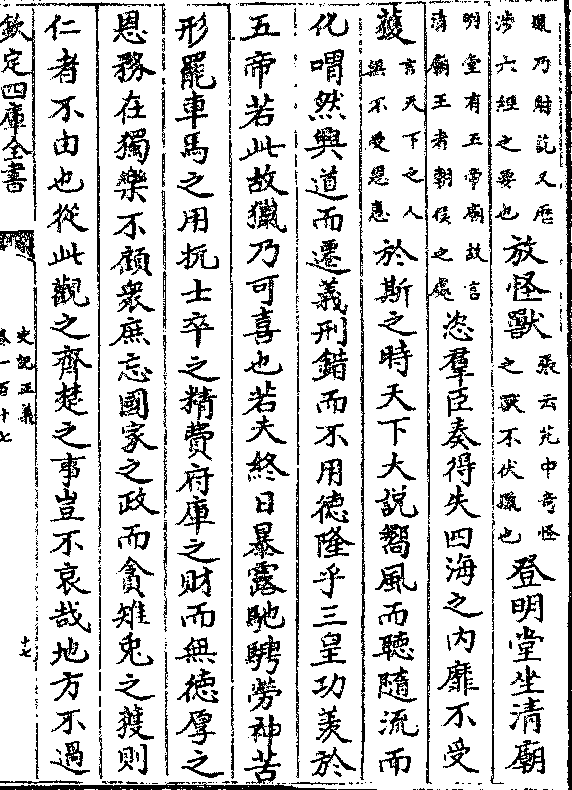 獵乃射訖又歷
渉六經之要也
放怪獸
張云苑中奇怪
之獸不伏獵也
登明堂坐清廟
明堂有五帝廟故言
清廟王者朝侯之處
恣羣臣奏得失四海之内靡不受
獲
言天下之人
無不受恩惠
於斯之時天下大說嚮風而聽隨流而
化喟然興道而遷義刑錯而不用德隆乎三皇功羡於
五帝若此故獵乃可喜也若夫終日暴露馳騁勞神苦
形罷車馬之用抏士卒之精費府庫之財而無德厚之
恩務在獨樂不顧衆庶忘國家之政而貪雉兔之獲則
仁者不由也從此觀之齊楚之事豈不哀哉地方不過
欽定四庫全書
史記正義
卷一百十七
十七